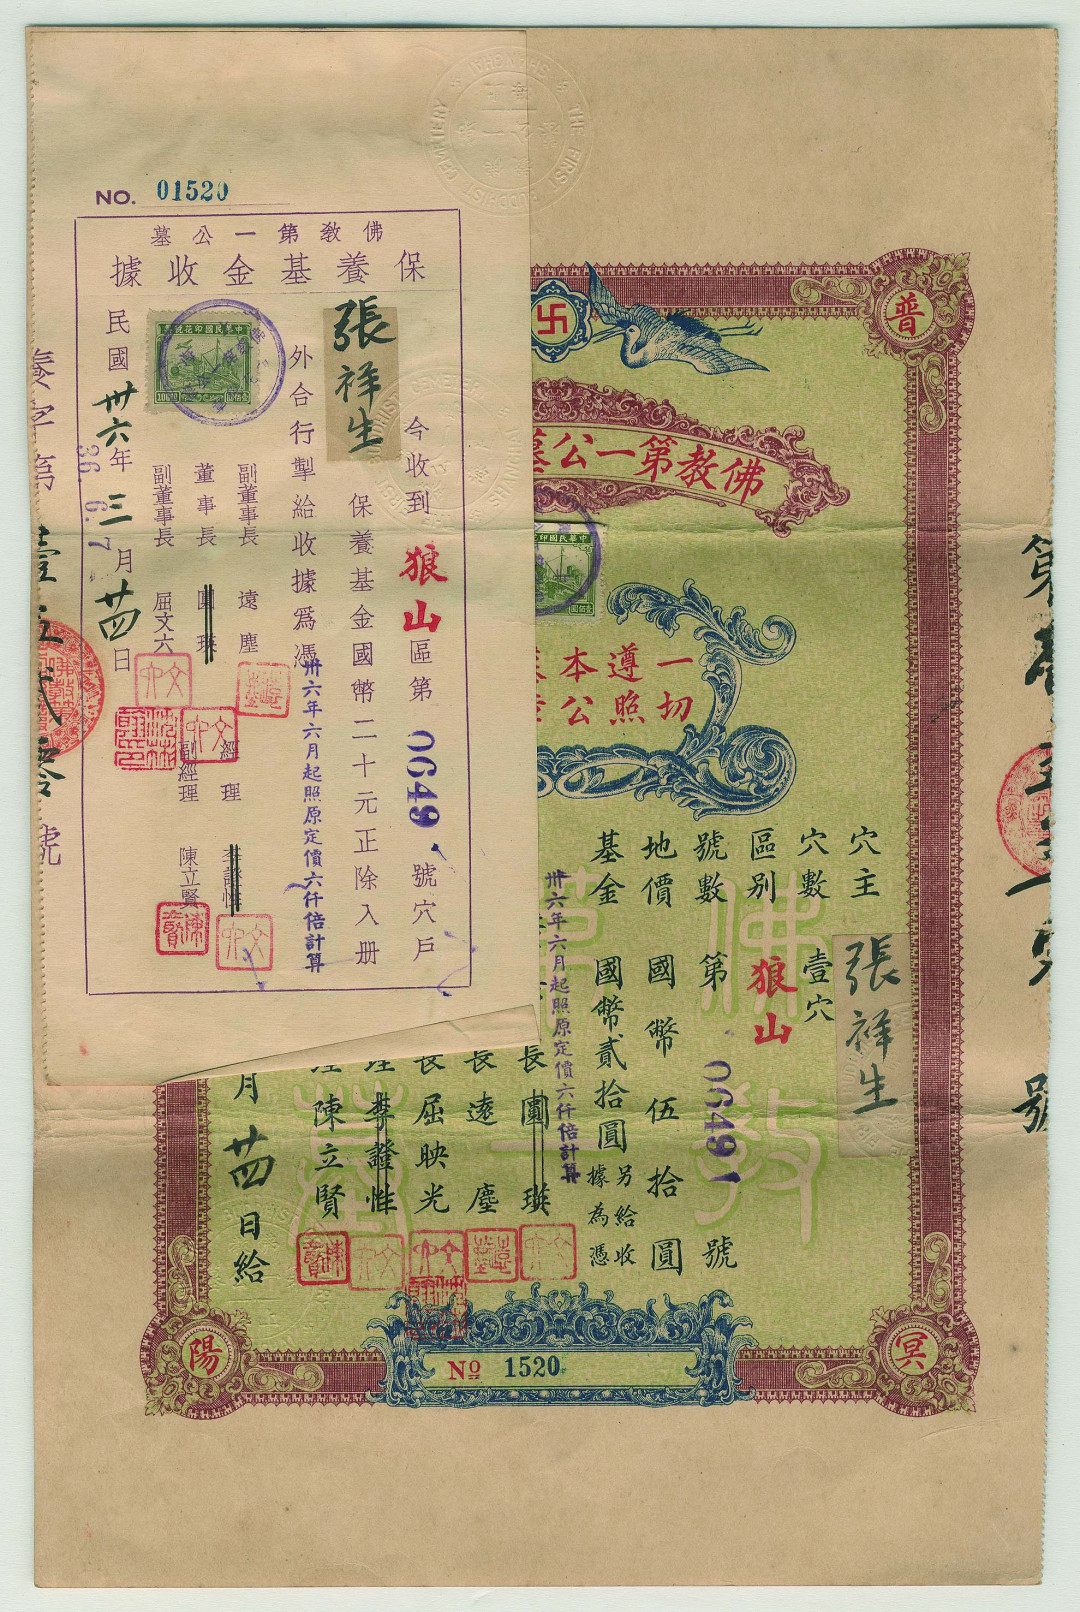 NO. 01520
佛教第一公墓
保養基金收據
今收到 狼山 區第 0649 號穴戶
張祥生 保養基金國幣二十元正除入册
外合行掣給收據爲憑
卅六年六月起照原定價六仟倍計算
副董事長 遠塵
董事長 圓瑛
副董事長 屈文六
經理 李證性
副經理 陳立賢
民國卅六年三月廿四日
36. 6. 7
中華民國印花稅票
100.00
壹佰圓
普
卍
佛教第一公墓
中華民國印
壹佰圓
一切遵照本
公
穴主 張祥生
穴數 壹穴
區別 狼山
號數 第 06491 號
地價 國幣 伍拾圓
基金 國幣貳拾圓 另給收據為憑
卅六年六月起照原定價六仟倍計算
長 圓瑛
長 遠塵
長 屈映光
理 李證性
理 陳立賢
月廿四日給
佛教第一
墓
陽
冥
№ 1520
養字第壹五弍零號
第
號
THE FIRST BUDDHIST CEMETERY SHANGHAI